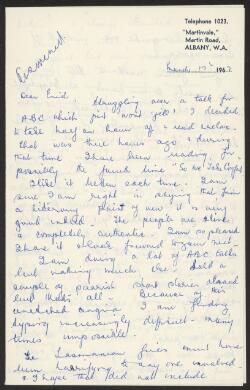 Telephone 1023.
"Martinvale,"
Martin Road,
ALBANY, W.A.
March 17th 1967
Dear Enid
Struggling over a talk for
ABC which just won't "jell" I decided
to take half an hour off & read instead.
that was three hours ago & during
that time I have been reading for
possibly the fourth time "So Mr John
I like it better each time. I am
sure I am right in saying that from
a listening point of view it is very
good indeed. The people are alive
& completely authentic. I am so pleased
I have it & look forward to your next.
I am doing a lot of ABC talks
but nothing much else. Sold a
couple of short stories
but that's all. Because this
wretched angina I am finding
typing increasingly difficult. many
times impossible.
The Tasmanian fires must have
been horrifying to any one involved
& I hope that did not include